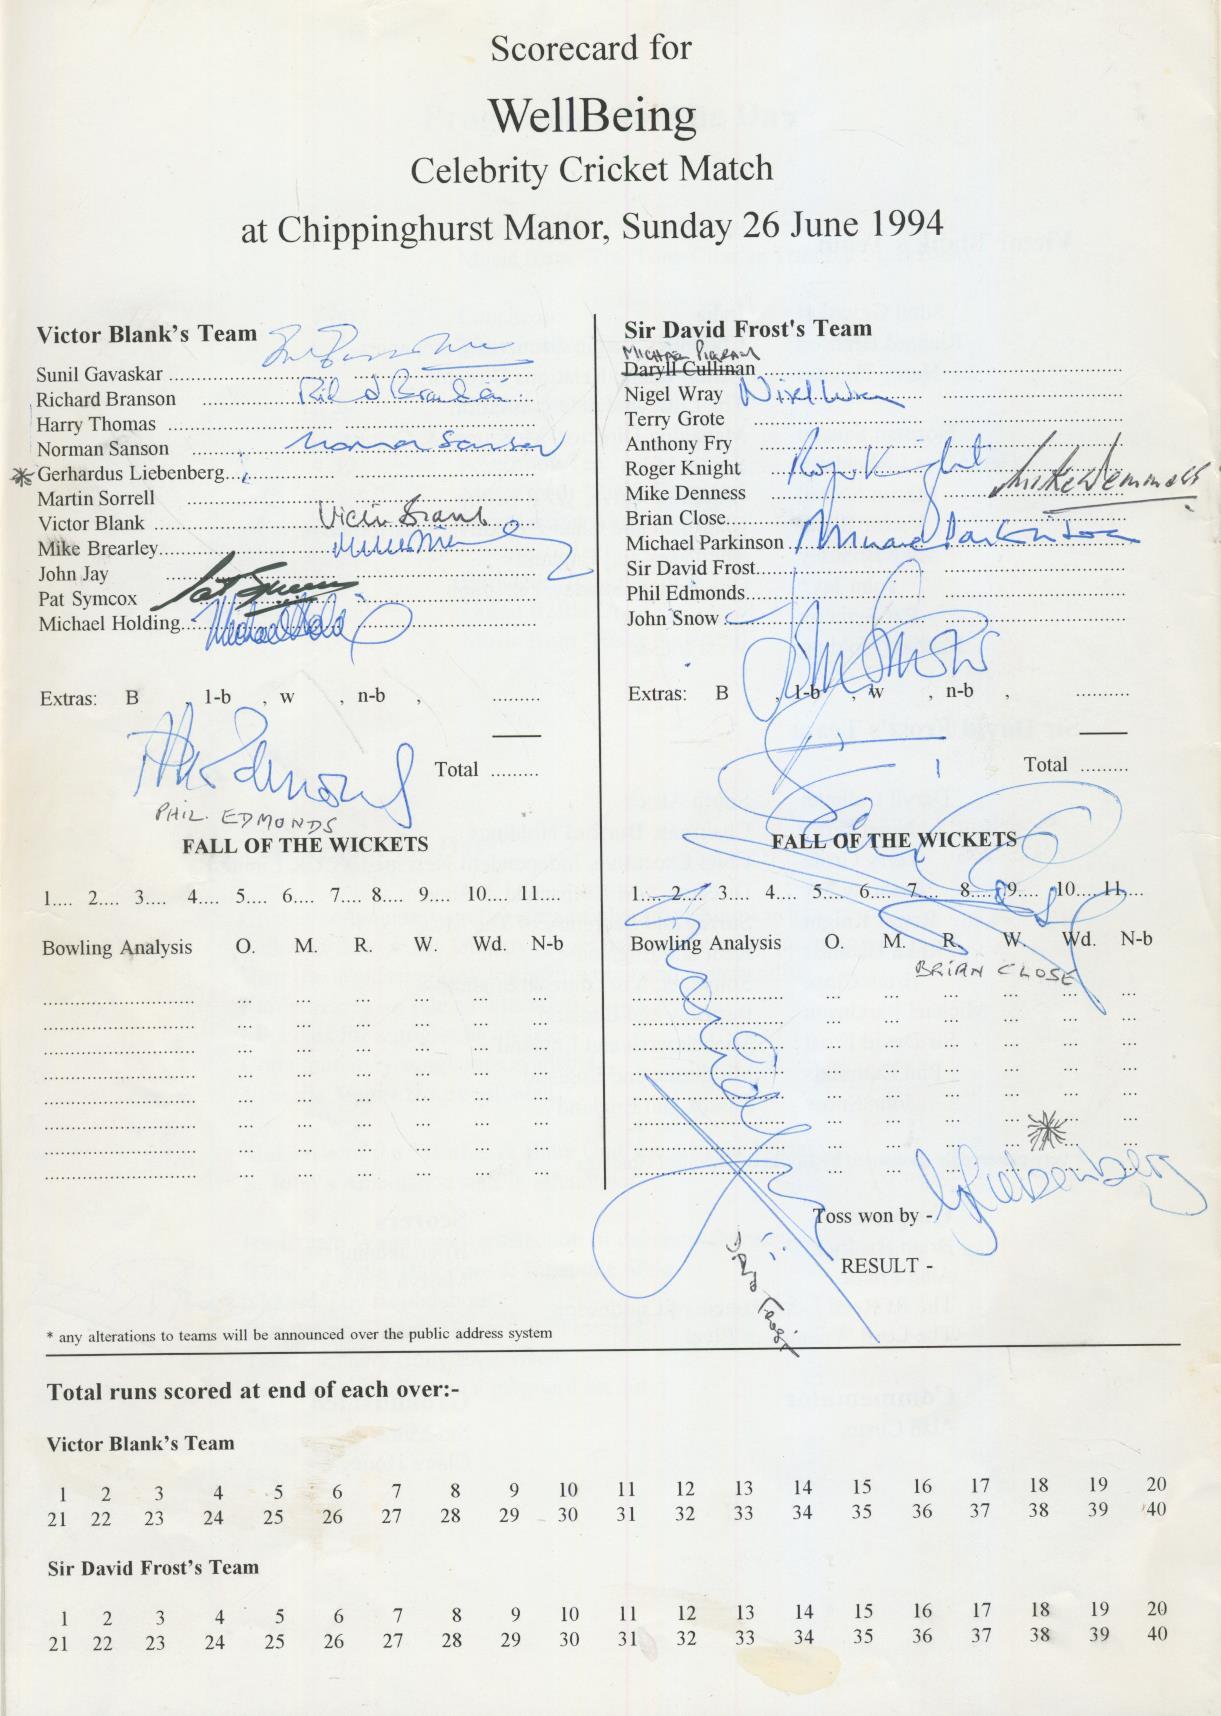 Scorecard for
WellBeing
Celebrity Cricket Match
at Chippinghurst Manor, Sunday 26 June 1994
Victor Blank's Team
Sunil Gavaskar
Richard Branson
Harry Thomas
Norman Sanson Norman Sanson
* Gerhardus Liebenberg
Martin Sorrell
Victor Blank Victor Blank
Mike Brearley
John Jay
Pat Symcox Pat Symcox
Michael Holding Michael Holding
Extras: B , l-b , w , n-b , .........
Total .........
Phil Edmonds
PHIL. EDMONDS
FALL OF THE WICKETS
1.... 2.... 3.... 4.... 5.... 6.... 7.... 8.... 9.... 10.... 11....
Bowling Analysis O. M. R. W. Wd. N-b
Sir David Frost's Team
MICHAEL
Daryll Cullinan
Nigel Wray Nigel Wray
Terry Grote
Anthony Fry
Roger Knight Roger Knight
Mike Denness Mike Denness
Brian Close
Michael Parkinson Michael Parkinson
Sir David Frost
Phil Edmonds
John Snow John Snow
Extras: B , l-b , w , n-b , .........
Total .........
FALL OF THE WICKETS
1.... 2.... 3.... 4.... 5.... 6.... 7.... 8.... 9.... 10.... 11....
Bowling Analysis O. M. R. W. Wd. N-b
BRIAN CLOSE
*
Toss won by - G Liebenberg
RESULT -
* any alterations to teams will be announced over the public address system
Total runs scored at end of each over:-
Victor Blank's Team
1 2 3 4 5 6 7 8 9 10 11 12 13 14 15 16 17 18 19 20
21 22 23 24 25 26 27 28 29 30 31 32 33 34 35 36 37 38 39 40
Sir David Frost's Team
1 2 3 4 5 6 7 8 9 10 11 12 13 14 15 16 17 18 19 20
21 22 23 24 25 26 27 28 29 30 31 32 33 34 35 36 37 38 39 40